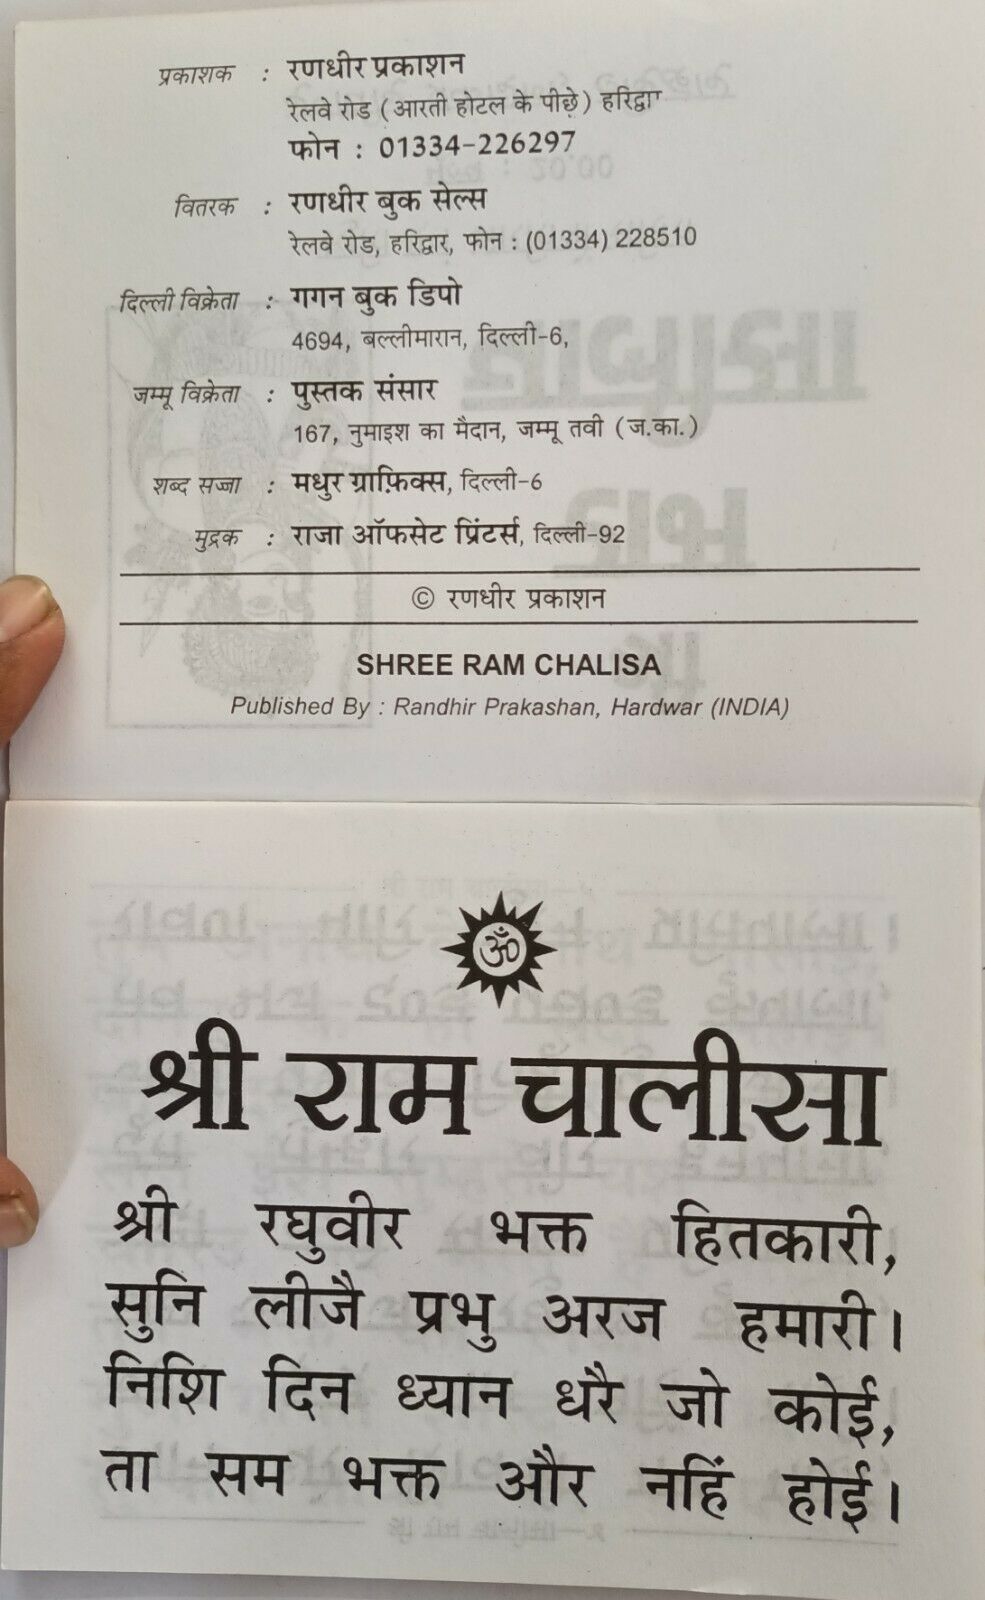 प्रकाशक : रणधीर प्रकाशन
रेलवे रोड (आरती होटल के पीछे)
फोन : 01334-226297
वितरक : रणधीर बुक सेल्स
रेलवे रोड, हरिद्वार, फोन : (01334) 228510
दिल्ली विक्रेता : गगन बुक डिपो
4694, बल्लीमारान, दिल्ली-6,
जम्मू विक्रेता : पुस्तक संसार
167, नुमाइश का मैदान, जम्मू तवी (ज.का.)
शब्द सज्जा : मधुर ग्राफ़िक्स, दिल्ली-6
मुद्रक : राजा ऑफसेट प्रिंटर्स, दिल्ली-92
© रणधीर प्रकाशन
SHREE RAM CHALISA
Published By : Randhir Prakashan, Hardwar (INDIA)
ॐ
श्री राम चालीसा
श्री रघुवीर भक्त हितकारी,
सुनि लीजै प्रभु अरज हमारी।
निशि दिन ध्यान धरै जो कोई,
ता सम भक्त और नहिं होई।